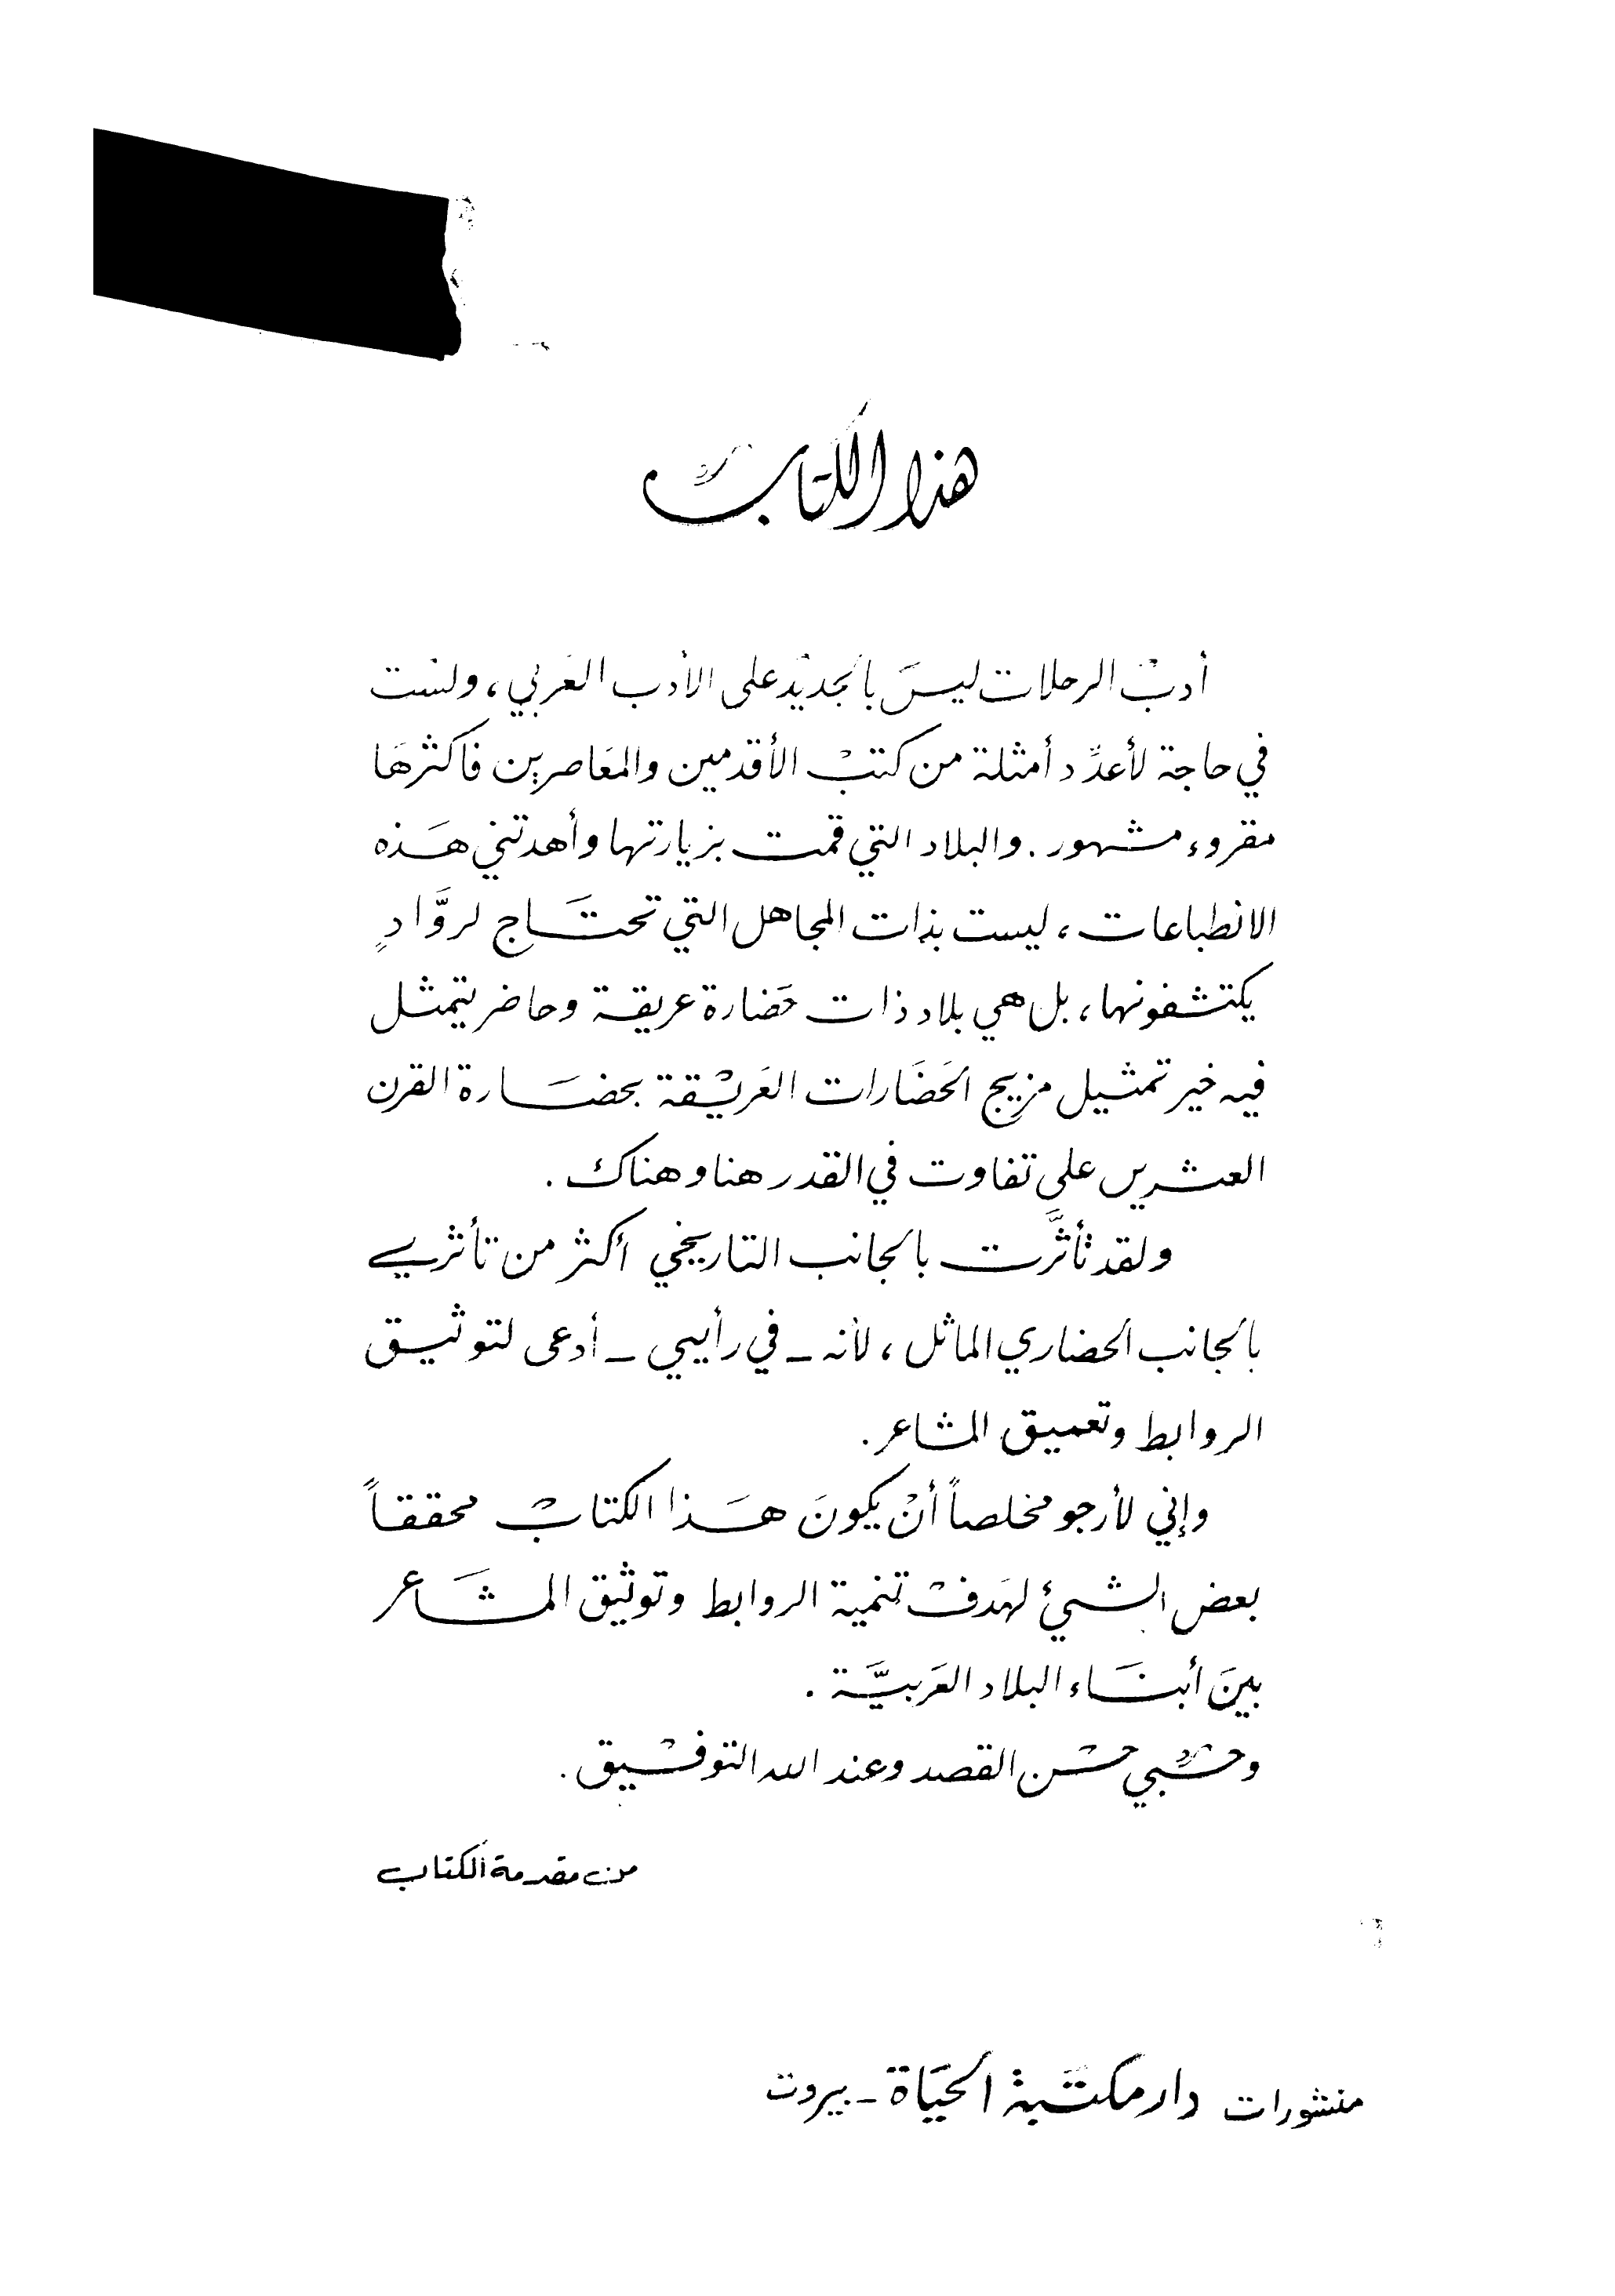 هذا الكتاب
أدب الرحلات ليسَ بالجديد على الأدب العَربي، ولست
في حاجة لأعدِّد أمثلة من كتب الأقدمين والمعَاصرين فاكثرهَا
مقروء مشهور. والبلاد التي قمت بزيارتها وأهدتني هَذه
الانطباعات، ليست بذات المجاهل التي تحتَاج لروَّادٍ
يكتشفونها، بل هي بلاد ذات حَضارة عريقة وحاضر يتمثل
فيه خير تمثيل مزيج الحَضَارات العَريقة بحضَارة القرن
العشرين على تفاوت في القدر هنا وهناك.
ولقد تأثَّرت بالجانب التاريخي أكثر من تأثري
بالجانب الحضاري الماثل، لأنه - في رأيي - أدعى لتوثيق
الروابط وتعميق المشاعر.
وإني لأرجو مخلصاً أن يكونَ هَذا الكتاب محققاً
بعض الشيئ لهَدف تنمية الروابط وتوثيق المشَاعر
بينَ أبنَاء البلاد العَربيَّة.
وحسْبي حسْن القصد وعند الله التوفيق.
من مقدمة الكتاب
منشورات دار مكتَبة الحيَاة - بيروت